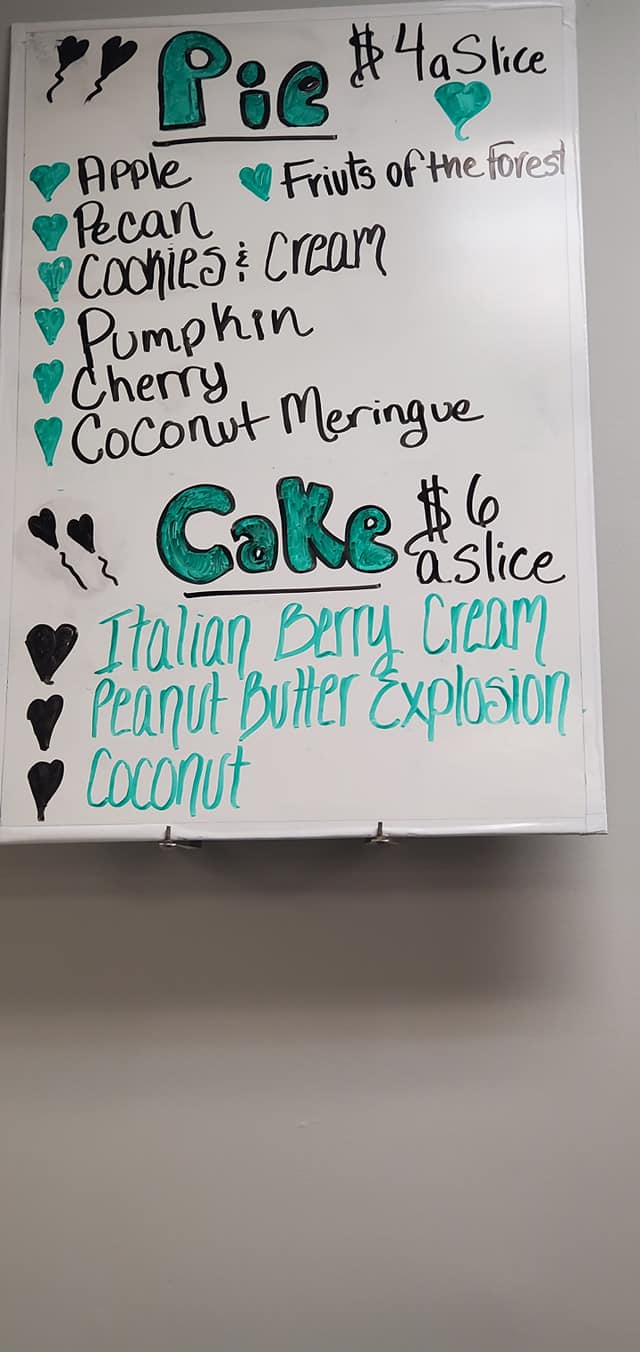 Pie $4 a Slice
Apple
Friuts of the Forest
Pecan
Cookies & Cream
Pumpkin
Cherry
Coconut Meringue
Cake $6
a slice
Italian Berry Cream
Peanut Butter Explosion
Coconut